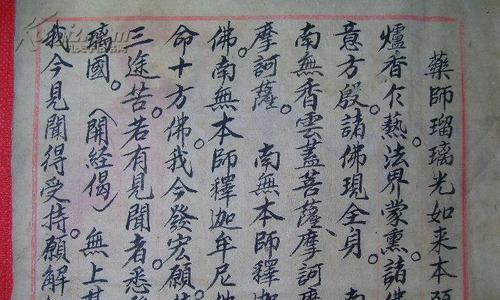 藥師瑠璃光如来本
爐香乍爇。法界蒙熏。諸佛
意方殷。諸佛現全身。南
南無香雲蓋菩薩、摩訶
摩訶薩。 南無本師釋迦
佛。南無本師釋迦牟尼佛
命十方佛。我今發宏願
三途苦。若有見聞者。悉
璃國。(開經偈)無上甚
我今見聞得受持。願解